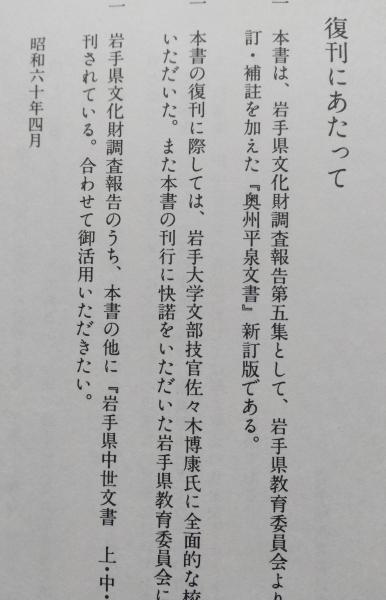 復刊にあたって
一 本書は、岩手県文化財調査報告第五集として、岩手県教育委員会より
訂・補註を加えた『奥州平泉文書』新訂版である。
一 本書の復刊に際しては、岩手大学文部技官佐々木博康氏に全面的な校
いただいた。また本書の刊行に快諾をいただいた岩手県教育委員会に
一 岩手県文化財調査報告のうち、本書の他に『岩手県中世文書 上・中・
刊されている。合わせて御活用いただきたい。
昭和六十年四月